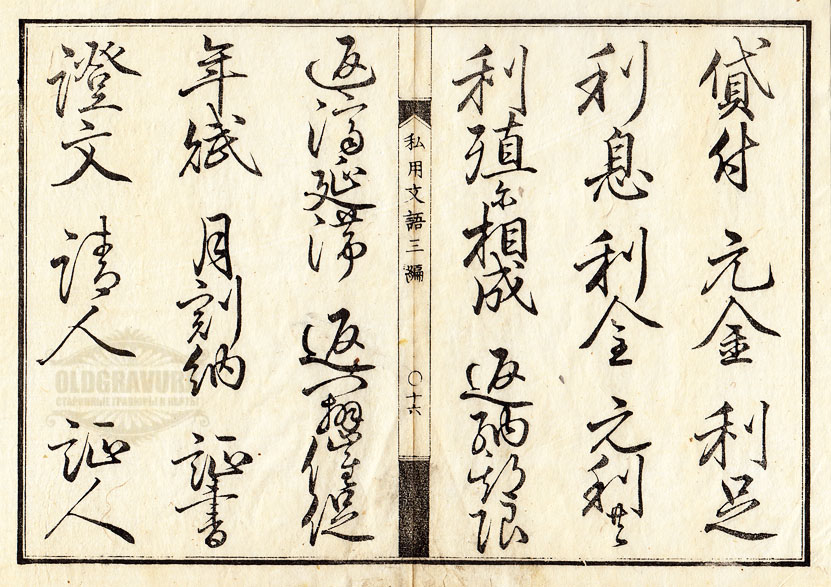 貸付 元金 利足
利息 利金 元利共
利殖尓相成 返納期限
私用文語三編 〇十六
返済延滞 返 催促
年賦 月割納 証書
證文 請人 証人
OLDGRAVUR
СТАРИННЫЕ ГРАВЮРЫ И КАРТЫ